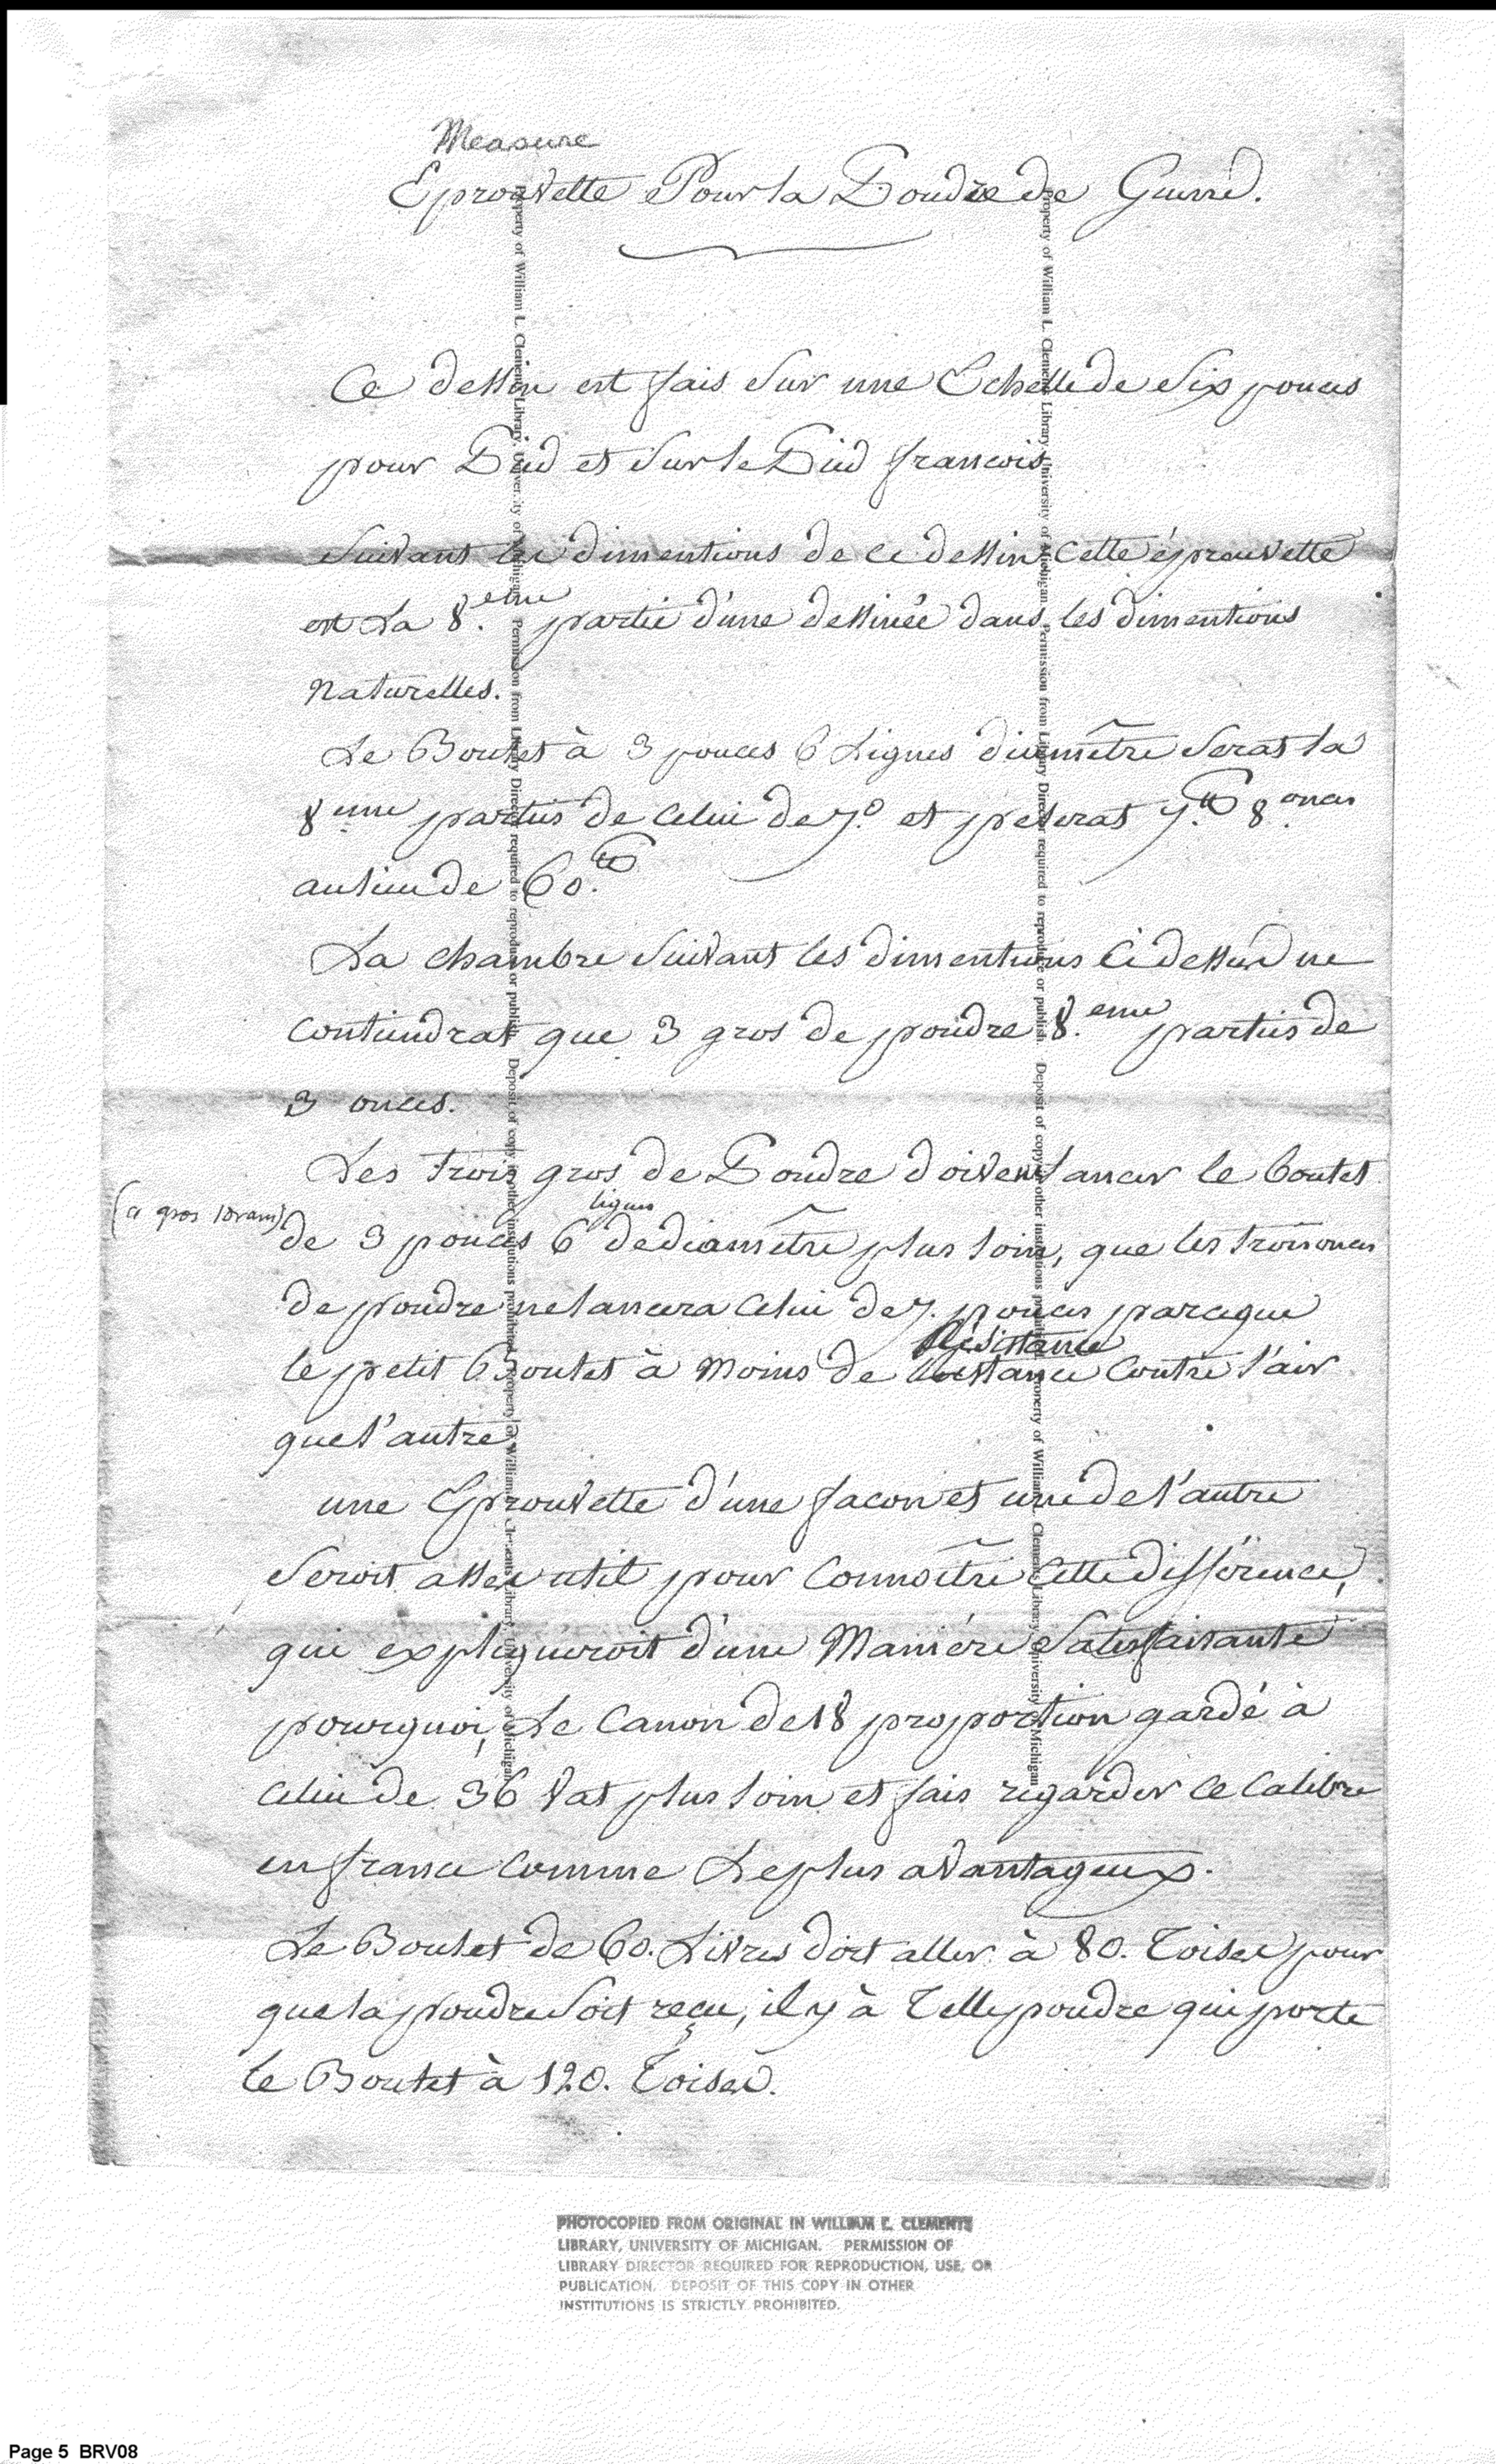 Measure
Eprouvette Pour la Poudre de Guerre.
Ce dessin est fais sur une Echelle de six pouces
pour Pied et sur le Pied francois
suivant les dimentions de ce dessin cette éprouvette
est la 8.eme partie d'une dessinée dans les dimentions
naturelles.
Le Boulet à 3 pouces 6 lignes diamêtre serat la
8eme parties de celui de 7.o et peserat 7.lb 8.onces
au lieu de 60.lb
La chambre suivant les dimentions ci dessus ne
contiendrat que 3 gros de poudre 8.eme parties de
3 onces.
Les trois gros de Poudre doivent lancer le boulet
(a gros 1 dram)
lignes
de 3 pouces 6 de diamêtre plus loin, que les trois onces
de poudre ne lancera celui de 7. pouces parceque
Résistance
le petit Boulet à moins de contre l'air
que l'autre
une Eprouvette d'une facon et une de l'autre
seroit assez util pour connoître cette difference,
qui expliqueroit d'une Maniére satisfaisante
pourquoi, Le Canon de 18 proportion gardé à
celui de 36 vat plus loin et fais regarder ce calibre
en france comme Le plus avantageux.
Le Boulet de 60. Livres doit aller à 80. Toises pour
que la poudre soit reçu, il y à Telle poudre qui porte
le Boulet à 120. Toises.
Property of William L. Clements Library, University of Michigan Permission from Library Director required to reproduce or publish. Deposit of copy in other institutions prohibited. Property of William L. Clements Library, University of Michigan
Property of William L. Clements Library, University of Michigan Permission from Library Director required to reproduce or publish. Deposit of copy in other institutions prohibited. Property of William L. Clements Library, University of Michigan
PHOTOCOPIED FROM ORIGINAL IN WILLIAM L. CLEMENTS
LIBRARY, UNIVERSITY OF MICHIGAN. PERMISSION OF
LIBRARY DIRECTOR REQUIRED FOR REPRODUCTION, USE, OR
PUBLICATION. DEPOSIT OF THIS COPY IN OTHER
INSTITUTIONS IS STRICTLY PROHIBITED.
Page 5 BRV08